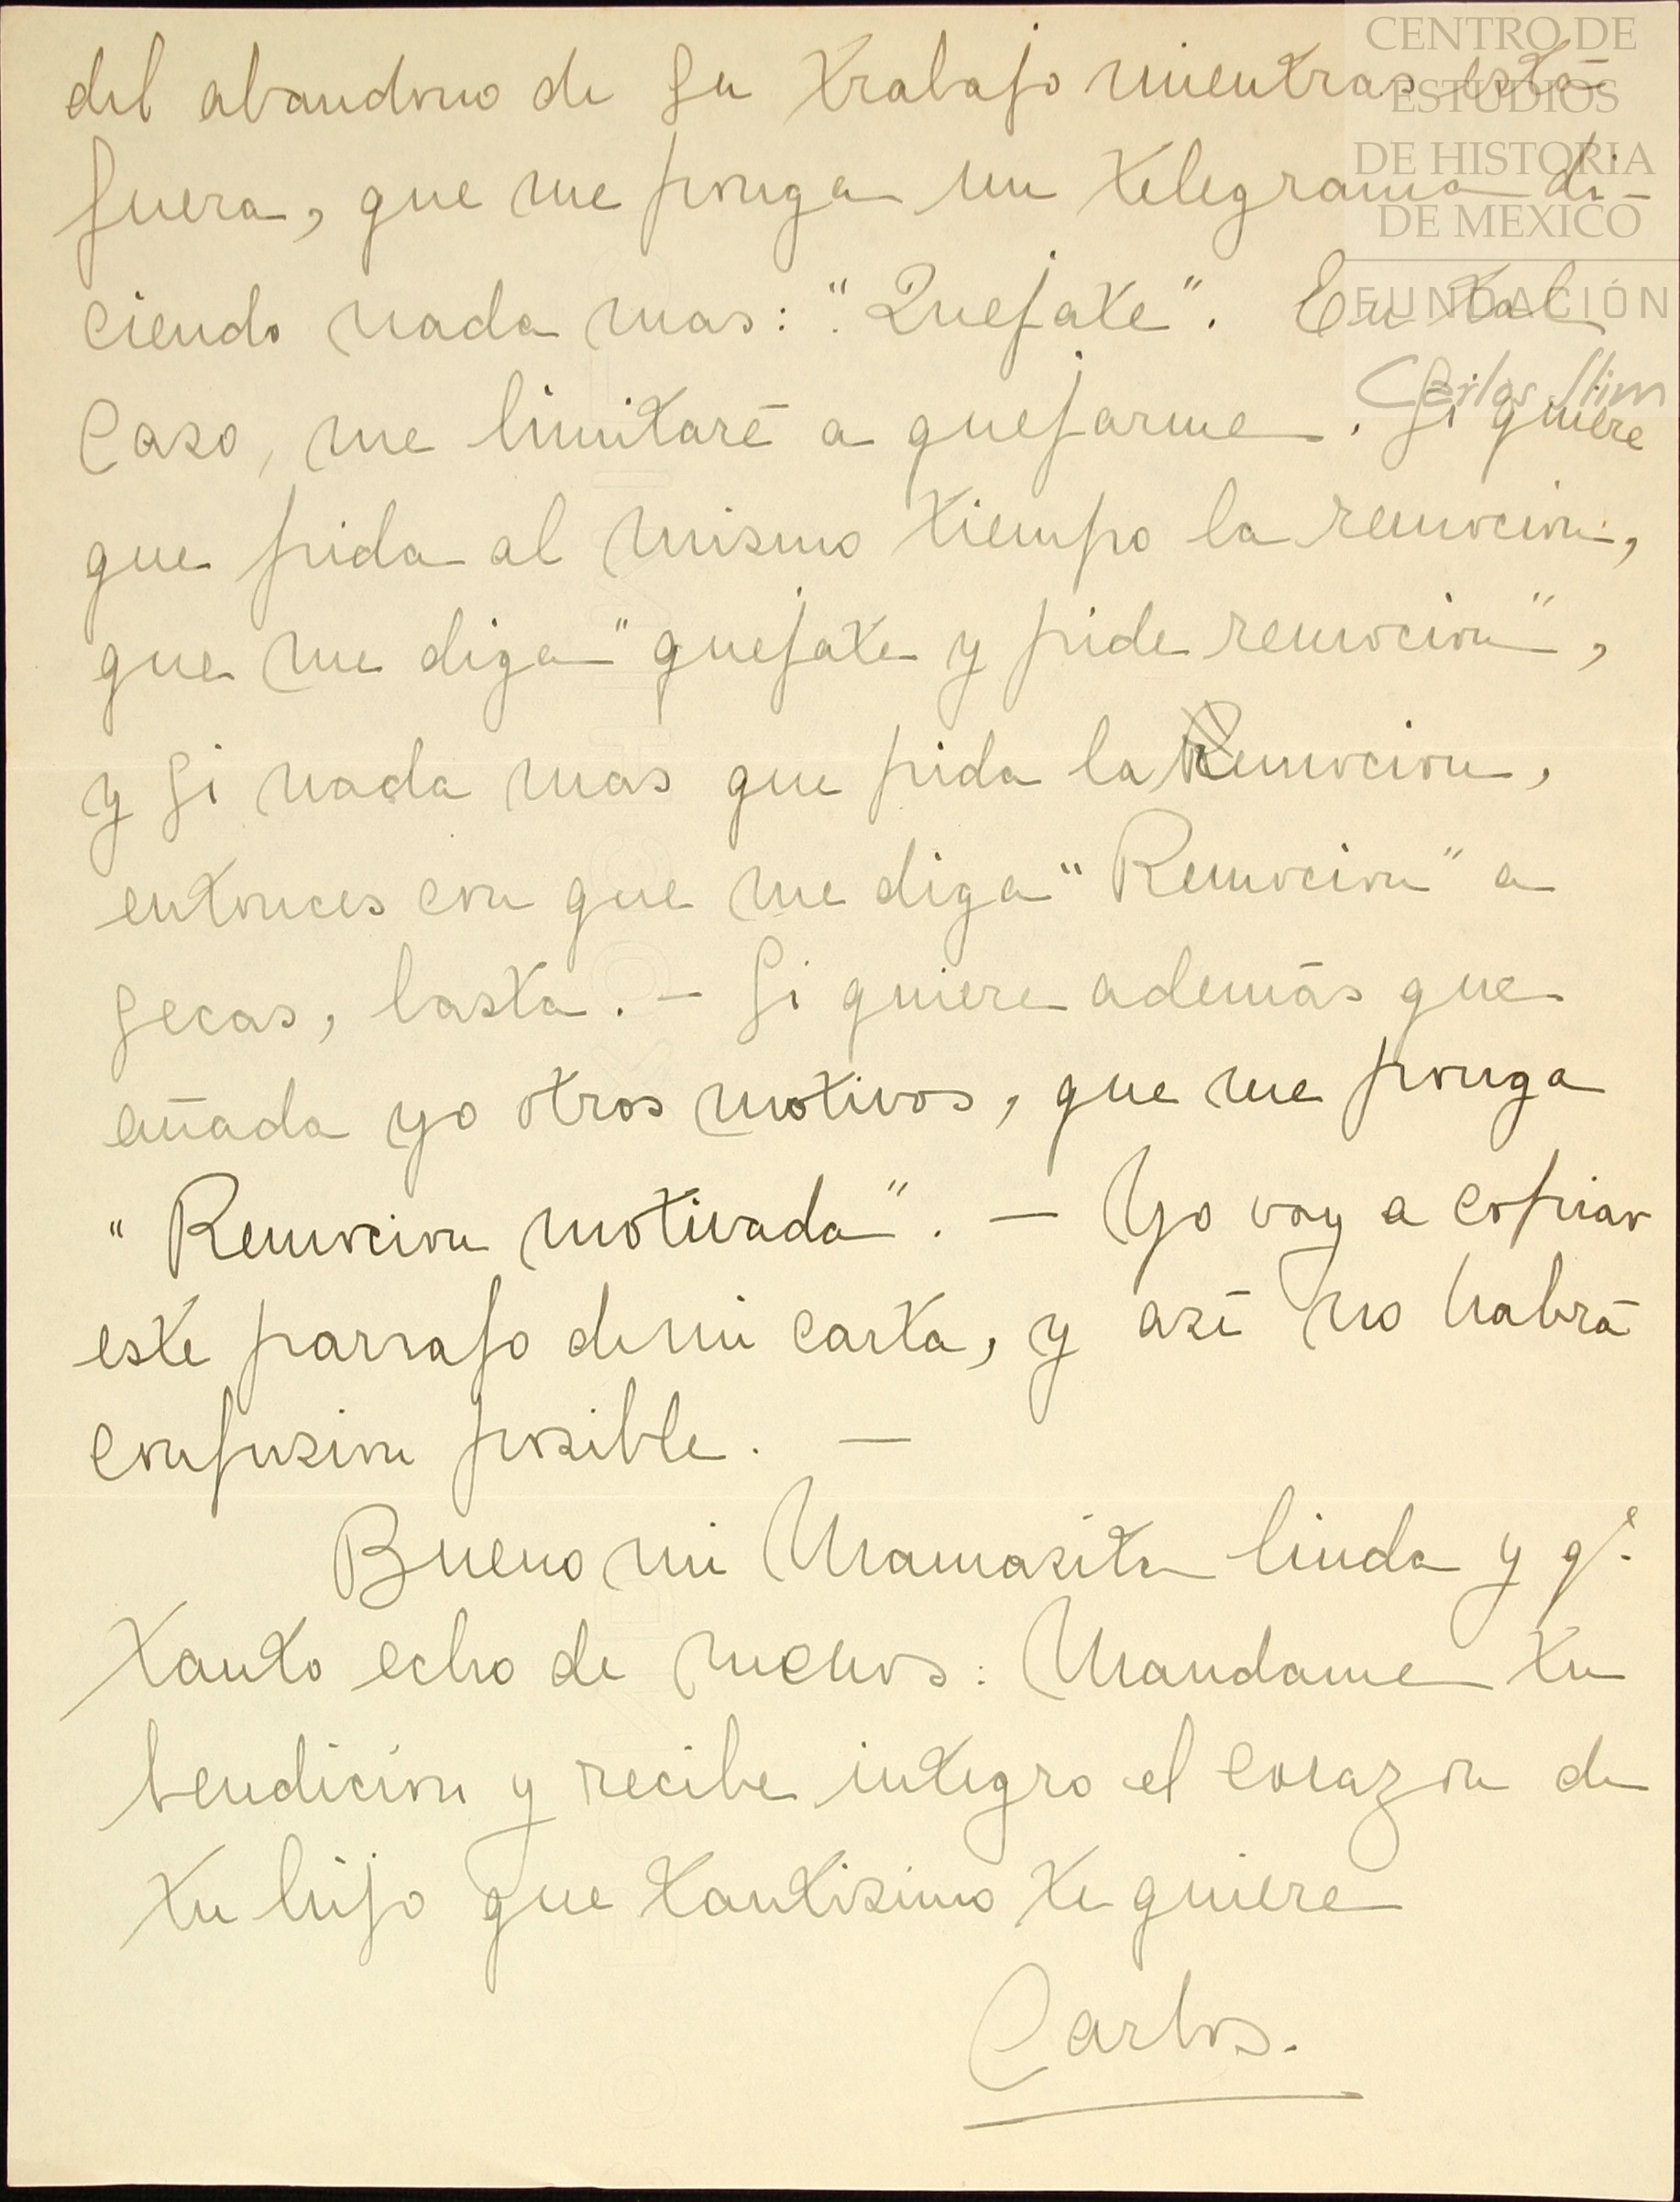 CENTRO DE
ESTUDIOS
DE HISTORIA
DE MEXICO
FUNDACIÓN
Carlos Slim
del abandono de su trabajo mientras está
fuera, que me ponga un telegrama di-
ciendo nada mas: "Quejate". En tal
caso, me limitaré a quejarme. Si quiere
que pida al mismo tiempo la remocion,
que me diga "quejate y pide remocion",
y si nada mas que pida la Remocion,
entonces con que me diga "Remocion" a
secas, basta. — Si quiere además que
añada yo otros motivos, que me ponga
"Remocion motivada". — Yo voy a copiar
este parrafo de mi carta, y asi no habrá
confusion posible. —
Bueno mi Mamasita linda y qe.
tanto echo de menos: Mandame tu
bendición y recibe integro el corazon de
tu hijo que tantisimo te quiere
Carlos.